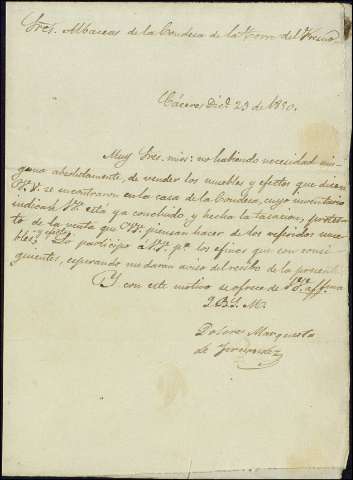 Sres. Albaceas de la Condesa de la Torre del Fresno
Cáceres Dic.e 23 de 1850.
Muy Sres. mios: no habiendo necesidad nin-
guna absolutamente, de vender los muebles y efectos que dicen
V.V. se encontraron en la casa de la Condesa, cuyo inventario
indican V.V. está ya concluido, y hecha la tasacion, protes-
to de la venta que VV. piensan hacer de los referidos mue-
bles y efectos. Lo participo á VV. p.a los efectos que son consi-
guientes, esperando me daran aviso del recibo de la presente.
Y con este motivo se ofrece de VV. aff.ma
Q.B.S.M.
Dolores
de Fernandez